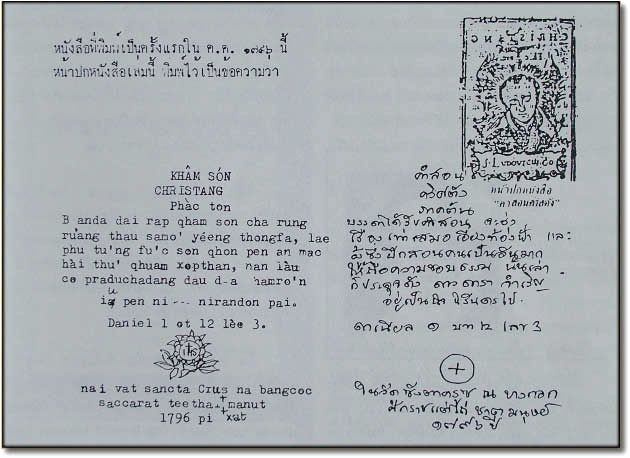 หนังสือที่พิมพ์เป็นครั้งแรกใน ค.ศ. ๑๗๙๖ นี้
หน้าปกหนังสือเล่มนี้ พิมพ์ไว้เป็นข้อความว่า
KHÂM SÓN
CHRISTANG
Phàc ton
Banda dai rap qham son cha rung
ruàng thau samo' yéeng thongfa, lae
phu tu'ng fu'c son qhon pen an mac
hài thu' qhuam xopthan, nan làu
co praduchadang dau d-a hamro'n
pen ni --- nirandon pai.
Daniel 1 ot 12 lèe 3.
IHS
nai vat sancta Crus na bangcoc
saccarat teetha manut
1796 pi xat
CHRISTANG
S. LUDOVICUS
หน้าปกหนังสือ
"คำสอนคริสตัง"
คำสอน
คริสตัง
ภาคต้น
บรรดาได้รับคำสอน จะรุ่ง
เรืองเท่าเสมอเยี่ยงท้องฟ้า และ
ผู้ซึ่งฝึกสอนคนเป็นอันมาก
ให้ถือความชอบธรรม นั้นเล่า
ก็ประดุจดัง ดาวดารา
อยู่เป็นนิจนิรันดรไป.
ดาเนียล ๑ บท ๑๒ แลฯ 3
ในวัดซังตาครูซ ณ บางกอก
มนุษย์
๑๗๙๖ ปี